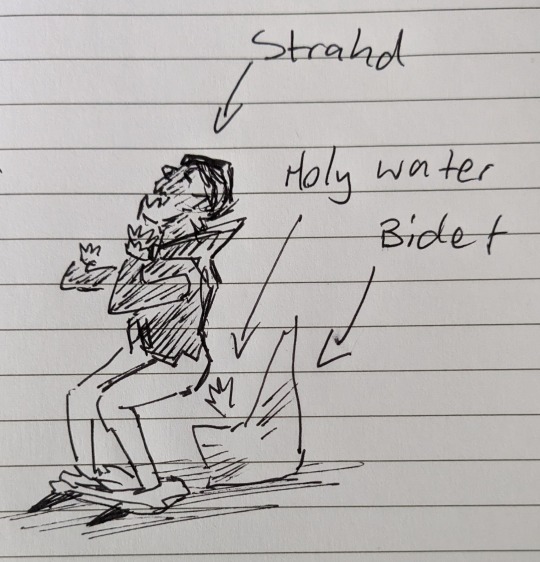 Strahd
Holy water
Bidet